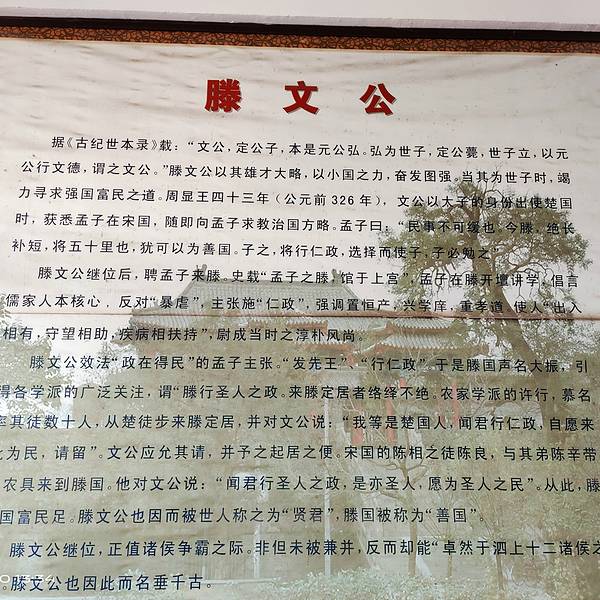 滕文公
据《古纪世本录》载：“文公，定公子，本是元公弘。弘为世子，定公薨，世子立，以元
公行文德，谓之文公。”滕文公以其雄才大略，以小国之力，奋发图强。当其为世子时，竭
力寻求强国富民之道。周显王四十三年（公元前326年），文公以太子的身份出使楚国
时，获悉孟子在宋国，随即向孟子求教治国方略。孟子曰：“民事不可缓也。今滕，绝长
补短，将五十里也，犹可以为善国。子之，将行仁政，选择而使子，子必勉之”
滕文公继位后，聘孟子来滕。史载“孟子之滕，馆于上宫”，孟子在滕开坛讲学，倡言
儒家人本核心，反对“暴虐”，主张施“仁政”，强调置恒产，兴学庠，重孝道，使人“出入
相有，守望相助，疾病相扶持”，尉成当时之淳朴风尚。
滕文公效法“政在得民”的孟子主张。“发先王”，“行仁政”，于是滕国声名大振，引
得各学派的广泛关注，谓“滕行圣人之政。来滕定居者络绎不绝。农家学派的许行，慕名
率其徒数十人，从楚徒步来滕定居，并对文公说：“我等是楚国人，闻君行仁政，自愿来
此为民，请留”。文公应允其请，并予之起居之便。宋国的陈相之徒陈良，与其弟陈辛带
农具来到滕国。他对文公说：“闻君行圣人之政，是亦圣人，愿为圣人之民”。从此，滕
国富民足。滕文公也因而被世人称之为“贤君”，滕国被称为“善国”。
滕文公继位，正值诸侯争霸之际。非但未被兼并，反而却能“卓然于泗上十二诸侯之
。滕文公也因此而名垂千古。